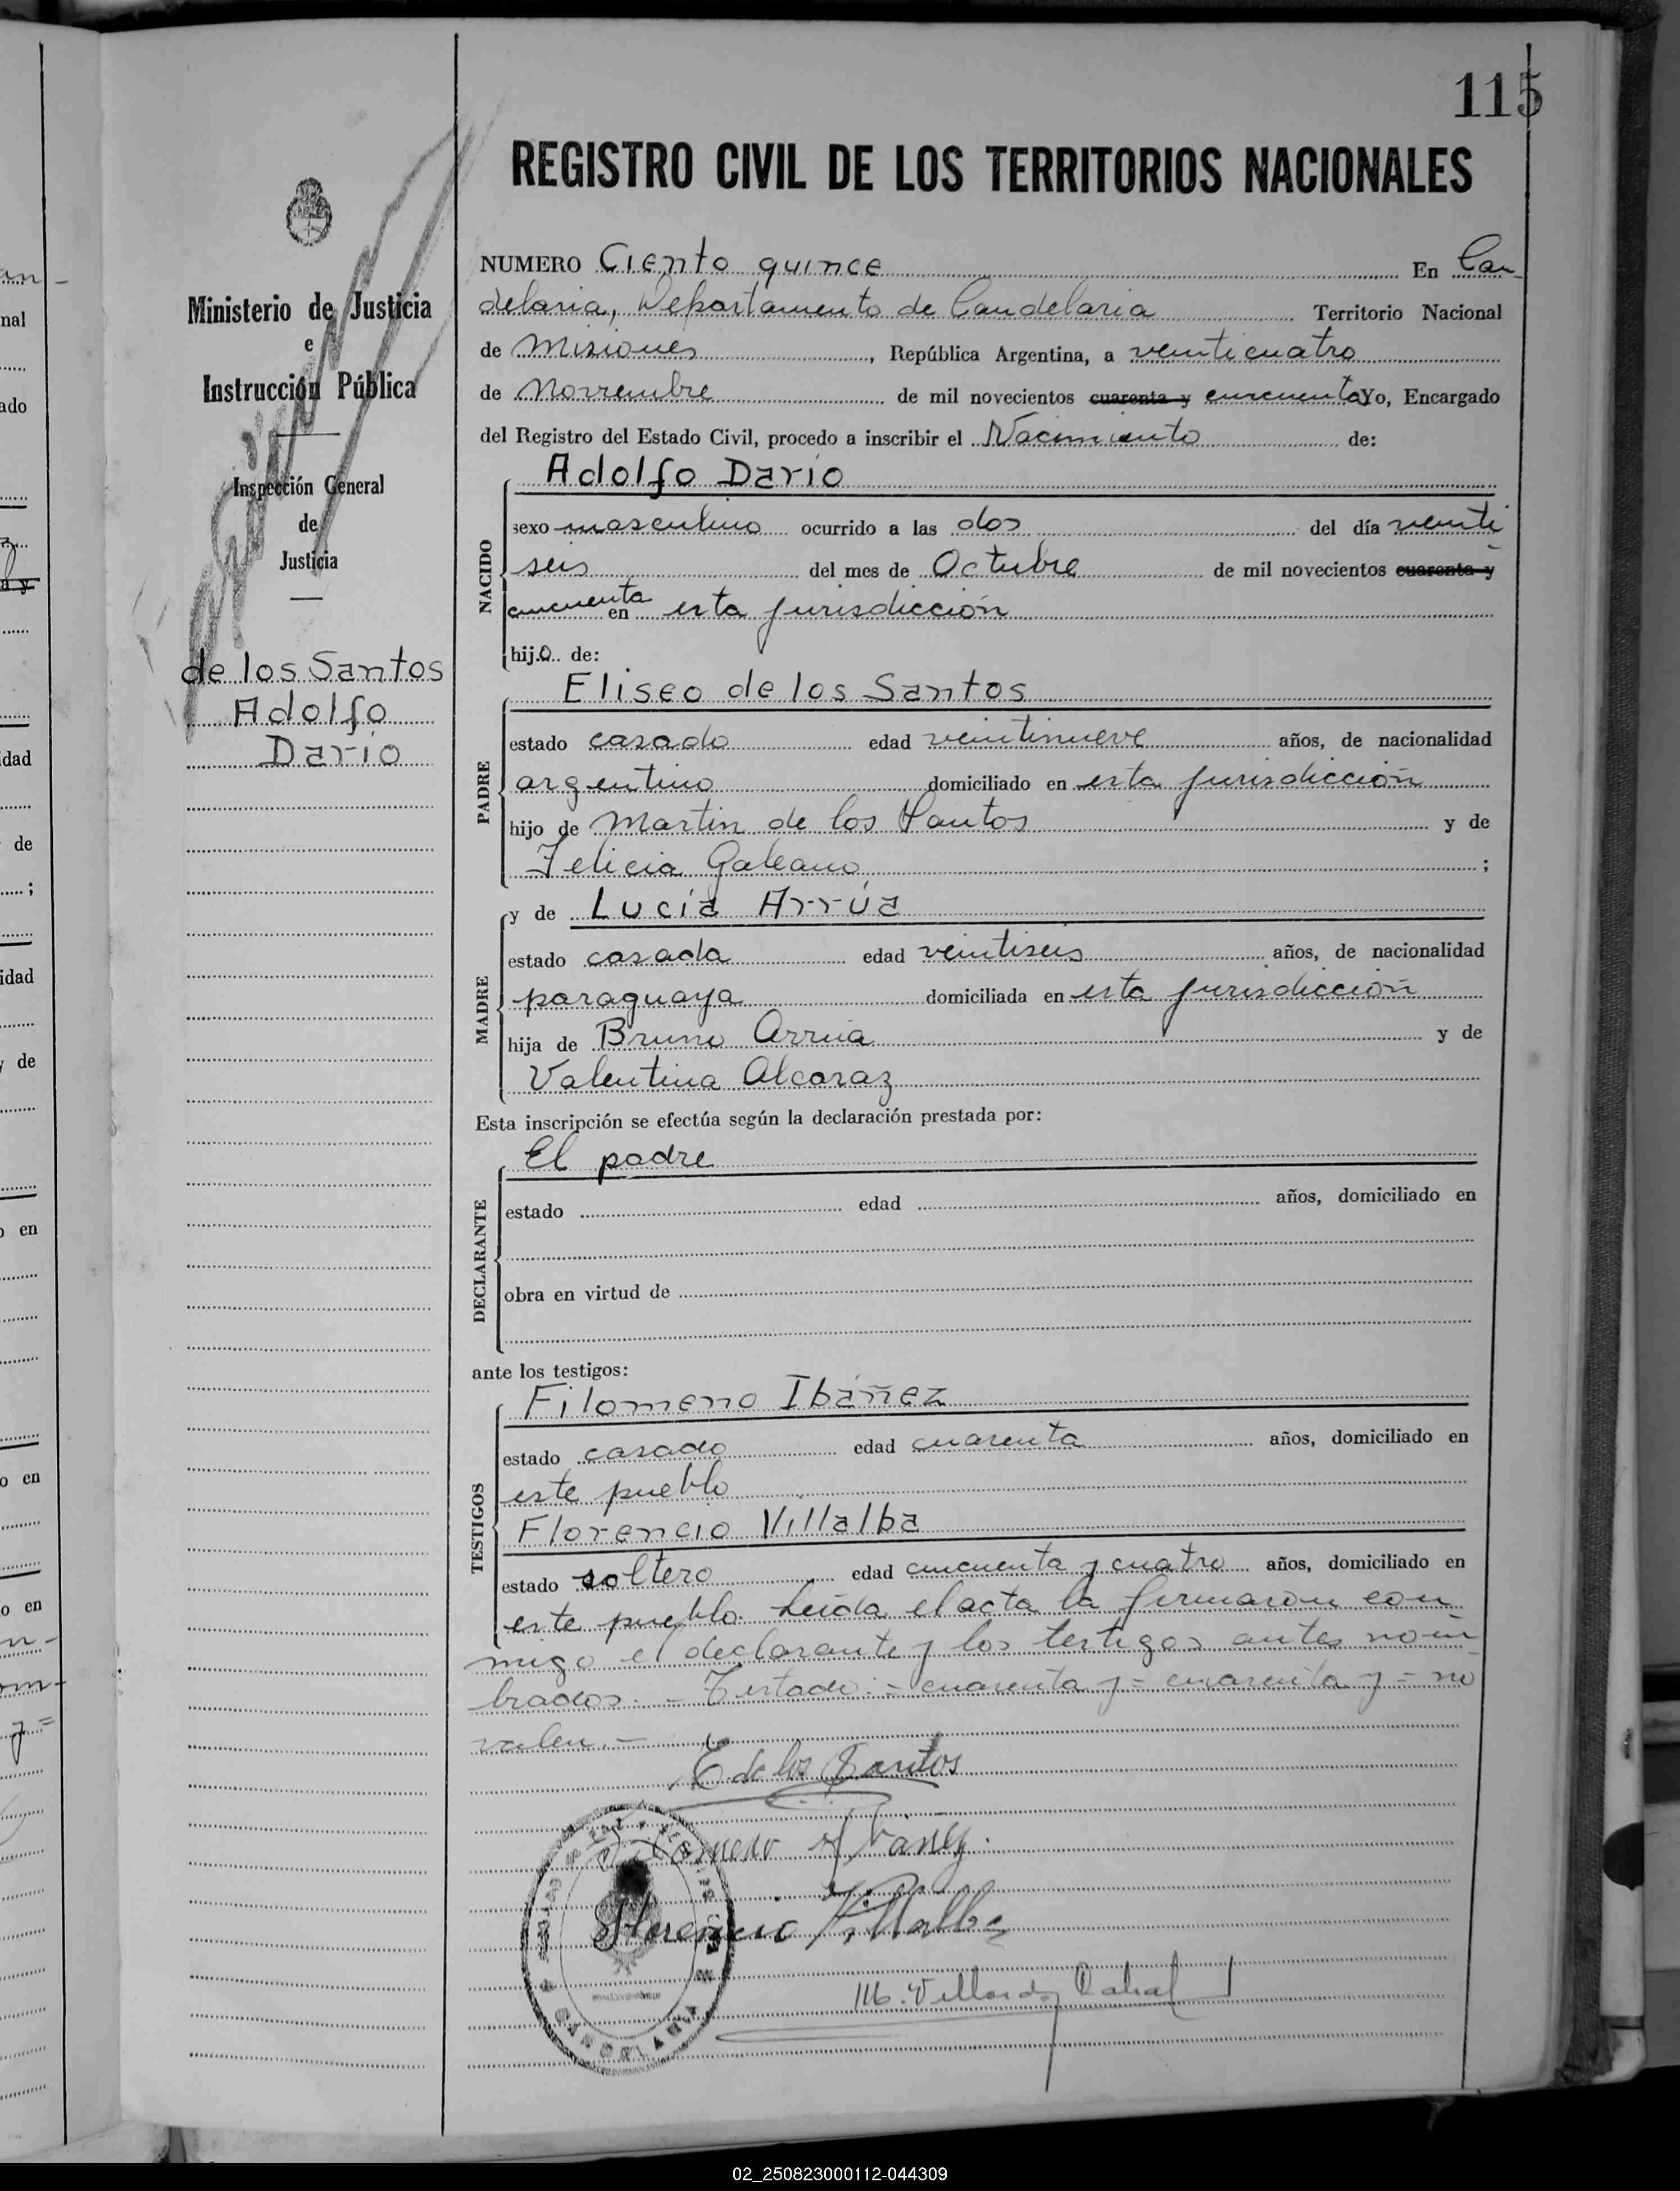 115
REGISTRO CIVIL DE LOS TERRITORIOS NACIONALES
Ministerio de Justicia
e
Instrucción Pública
Inspección General
de
Justicia
de los Santos
Adolfo
Dario
NUMERO Ciento quince En Can-
delaria, Departamento de Candelaria Territorio Nacional
de Misiones, República Argentina, a veinticuatro
de Noviembre de mil novecientos cuarenta y cincuenta Yo, Encargado
del Registro del Estado Civil, procedo a inscribir el Nacimiento de:
Adolfo Dario
NACIDO
sexo masculino ocurrido a las dos del día veinti
seis del mes de Octubre de mil novecientos cuarenta y
cincuenta en esta jurisdicción
hijo de:
Eliseo de los Santos
PADRE
estado casado edad veintinueve años, de nacionalidad
argentino domiciliado en esta jurisdicción
hijo de Martin de los Santos y de
Felicia Galeano ;
y de Lucía Arrúa
MADRE
estado casada edad veintiseis años, de nacionalidad
paraguaya domiciliada en esta jurisdicción
hija de Bruno Arrúa y de
Valentina Alcaraz
Esta inscripción se efectúa según la declaración prestada por:
El padre
DECLARANTE
estado edad años, domiciliado en
obra en virtud de
ante los testigos:
Filomeno Ibáñez
TESTIGOS
estado casado edad cuarenta años, domiciliado en
este pueblo
Florencio Villalba
estado soltero edad cincuenta y cuatro años, domiciliado en
este pueblo. Leída el acta la firmaron con
migo el declarante y los testigos antes nom
brados.- Testado:- cuarenta y = cuarenta y = no
valen.-
E de los Santos
Filomeno Ibáñez.
Florencio Villalba
CANDELARIA
02_250823000112-044309